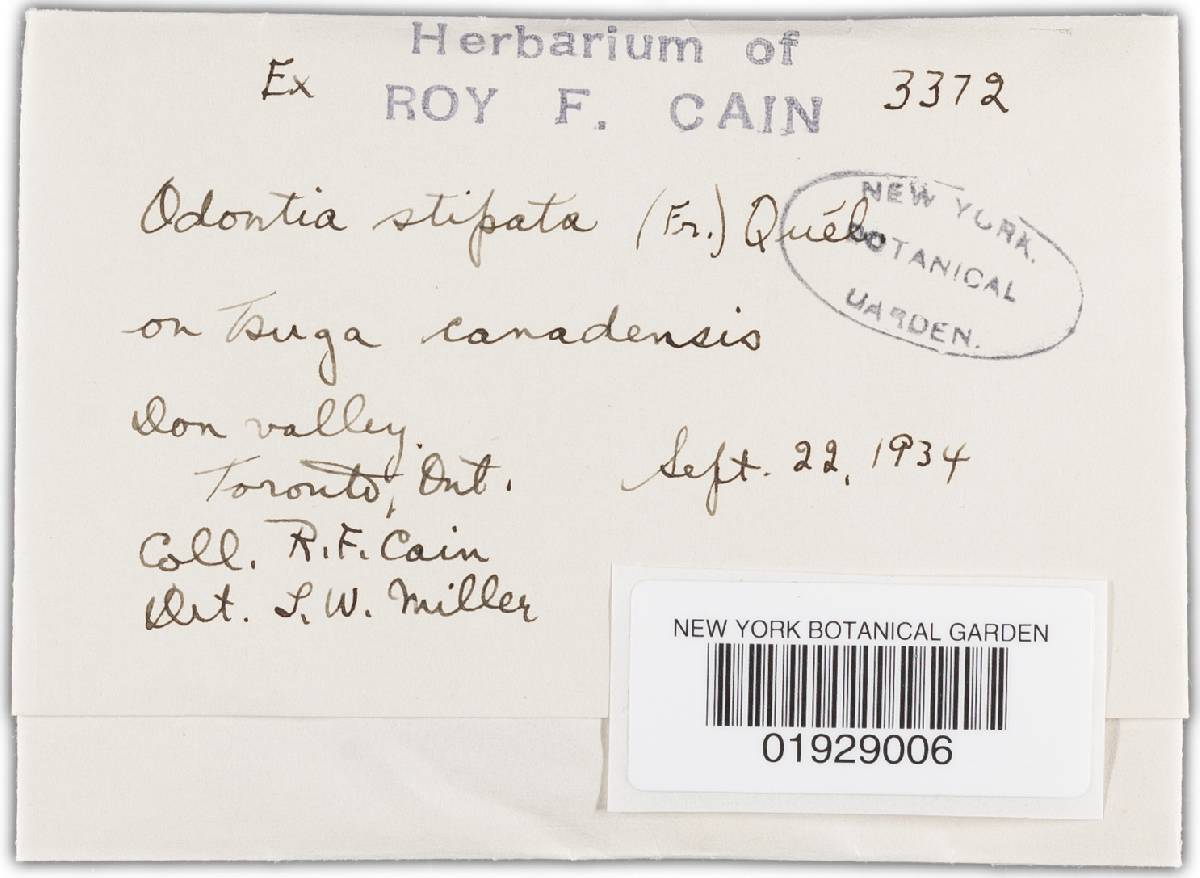 Herbarium of
Ex ROY F. CAIN 3372
Odontia stipata (Fr.) Quél.
NEW YORK
BOTANICAL
GARDEN.
on Tsuga canadensis
Don valley.
Toronto, Ont. Sept. 22, 1934
Coll. R.F. Cain
Det. L.W. Miller
NEW YORK BOTANICAL GARDEN
01929006